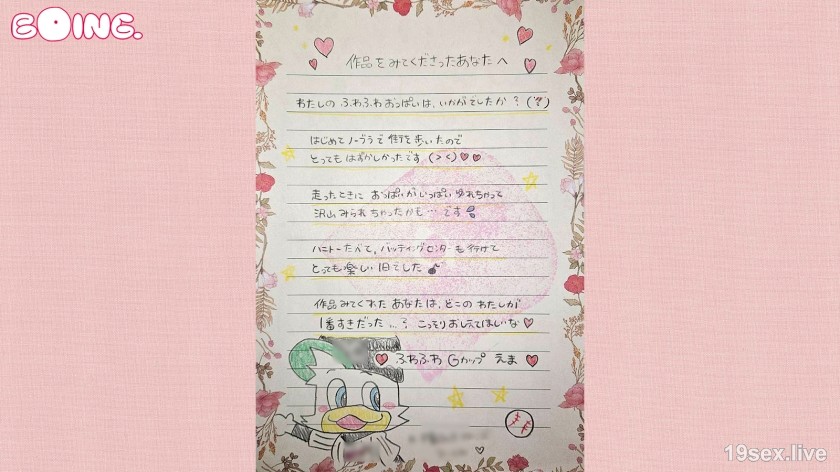 BOING.
作品をみてくださったあなたへ
わたしの ふわふわおっぱいは、いかがでしたか？(♡?)
はじめてノーブラで街を歩いたので
とってもはずかしかったです(＞＜)♡♡
走ったときに おっぱいがいっぱいゆれちゃって
沢山みられちゃったかも…です
ハニトーたべて、バッティングセンターも行けて
とっても楽しい1日でした
作品みてくれた あなたは、どこの わたしが
1番すきだった…？ こっそりおしえてほしいな♡
♡ ふわふわ Gカップ えま ♡
19sex.live